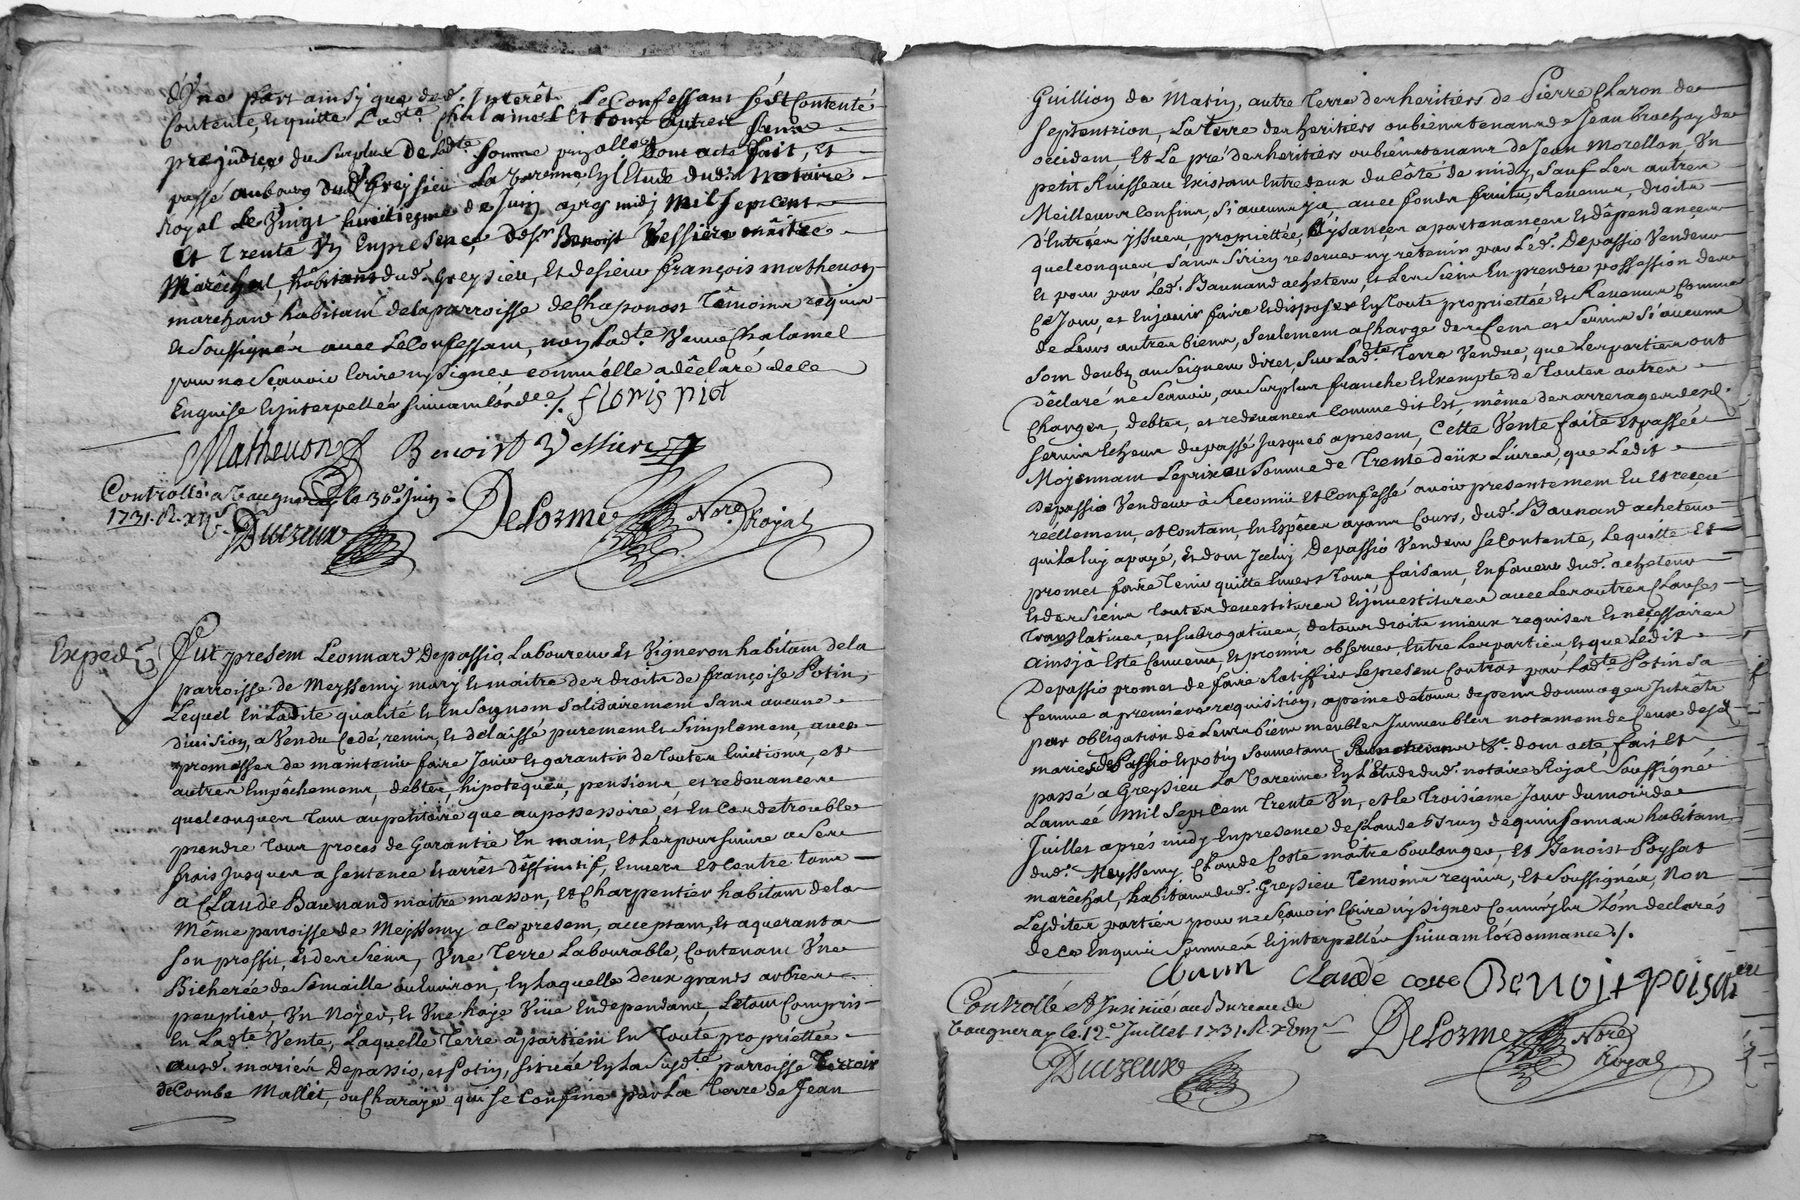 d'Une part ainsy que des Interêts Le Confessant sest Contenté
Contente, Et quitte Ladte Chalamel Et tous autres sans
prejudice du surplus de Ladte somme principalle Dont acte fait, et
passé au bourg dud. Greysieu La Varenne En l'Etude dud. Notaire
Royal Le Vingt huitiesme de Juin apres midy Mil Sept cent
Et Trente Un En presence de sr Benoist Vessiere maitre
Marêchal, habitant dud. Greysieu, Et de sieur françois matheuon
marchand habitant de la parroisse de Chaponost Têmoins requis
Et soussignés avec Le Confessant, non Ladte Veuve Chalamel
pour ne sçavoir Ecrire ny signer comm'elle a dêclaré de ce
Enquise Et interpellée suivant lórdce ./. floris piot
Matheuon Benoist Vessiere
Controllé a Vaugneray le 30e Juin
1731. R. xii s
Duezeux Delorme Nore Royal
Exped.
Fut present Leonnard Depassio Laboureur Et Vigneron habitant de la
parroisse de Meyssemy mary Et maitre des droits de françoise Potin,
Lequel En Ladite qualité Et En son nom solidairement sans aucune
division, a Vendu Cedé, remis, Et dêlaissé purement Et simplement, avec
promesse de maintenir faire Jouir Et garantir de Toutes Evictions, et
autres Empêchemens, debtes, hipoteques, pensions, et redevances
quelconques Tant au petitoire que au possessoire, et En Cas de trouble
prendre Tour proces de Garantie En main, Et Les poursuivre a ses
frais Jusques a sentence Et arrêt dêffinitif, Envers Et contre tous
a Claude Baunand maitre masson, Et Charpentier habitant de la
Même parroisse de Meyssemy a ce present, acceptant, Et aquerant a
son proffit, Et des siens, Une Terre Labourable, Contenant Une
Bicherée de semaille ou Environ, En laquelle deux grands arbres
peupliers, Un Noyer, Et Une haye Vive En dependant, Le tout Compris
En Ladte Vente, Laquelle Terre apartient En Toute propriettée
ausd. mariés Depassio, et Potin, située En La susdte parroisse Terroir
de Combe Mallet, ou Charaye qui se Confine par La Terre de Jean
Guillion de Matin, autre Terre des heritiers de Pierre Charon de
septentrion, La Terre des heritiers ou bien tenans de Jean brochay de
occident, Et Le pré des heritiers ou bien tenans de Jean Morellon, Un
petit Ruisseau Existant Entre deux du côté de midy, sauf Les autres
Meilleurs Confins, si aucuns y a avec fonds fruits, Revenus, droits
d'Entrées yssues, propriettée, aysances apartenances Et dêpendances
quelconques sans s'irien reserver ny retenir par Led. Depassio Vendeur
Et pour par Led. Baunand acheteur, et Les siens En prendre possession des
Ce Jour, et En jouir faire Et disposer En Toute propriettée Et Revenus Comme
de Leurs autres biens, seulement a Charge des Cens et Servis si aucuns
sont deubz au seigneur direct, sur Ladte Terre Vendue, que Les parties ont
dêclaré ne sçavoir, au surplus franche Et Exempte de Toutes autres
Charges, debtes, et redevances Comme dit Est, même des arrerages desd.
servis Echeus du passé Jusques apresent, Cette Vente faite Et passée
Moyennant Le prix ou somme de Trente deux Livres, que Ledit
Depassio Vendeur à Reconnû Et Confessé avoir presentement Eu Et receu
réellement, et Contant, En Espêces ayans Cours, dud. Baunand acheteur
qui La luy a payé, Et dont Icelui Depassio Vendeur se Contente, Le quitte Et
promet faire Tenir quitte Envers Tous, faisant, En faveur dud. acheteur
Et des siens Toutes devestitures Et investitures avec Les autres Clauses
Translatives, et subrogatives, de tous droits mieux requises Et nécessaires
ainsy à Esté Convenu, Et promis observer Entre Les parties Et que Ledit
Depassio promet de faire Ratiffier Le present Contrat par Ladte Potin sa
femme a premiere requisition, a peine de tous depens dommages Intrêts
par obligation de Leurs biens meubles Immeubles notament de Ceux desd.
mariés de Passio Et potin soumetant, Renonciant &c. dont acte, fait Et
passé a Greysieu La Varenne En l'Etude dud. notaire Royal soussigné
L'année Mil Sept Cent Trente Un, et Le Troisiême Jour du mois de
Juillet aprés midy En presence de Claude brun de quinsonnas habitant
dud. Meyssemy, Claude Coste maitre boulanger, Et Benoist Poyssat
marêchal, habitans dud. Greysieu Temoins requis, Et soussignés, Non
Lesdites parties pour ne sçavoir Ecrire ny signer Comm'ils L'ont declarés
de ce Enquis sommés Et interpellés suivant l'órdonnance ./.
Claude coste Benoist poisat
Controllé Et Insinué au Bureau de
Vaugneray le 12e Juillet 1731. R.
Duezeux Delorme Nore Royal